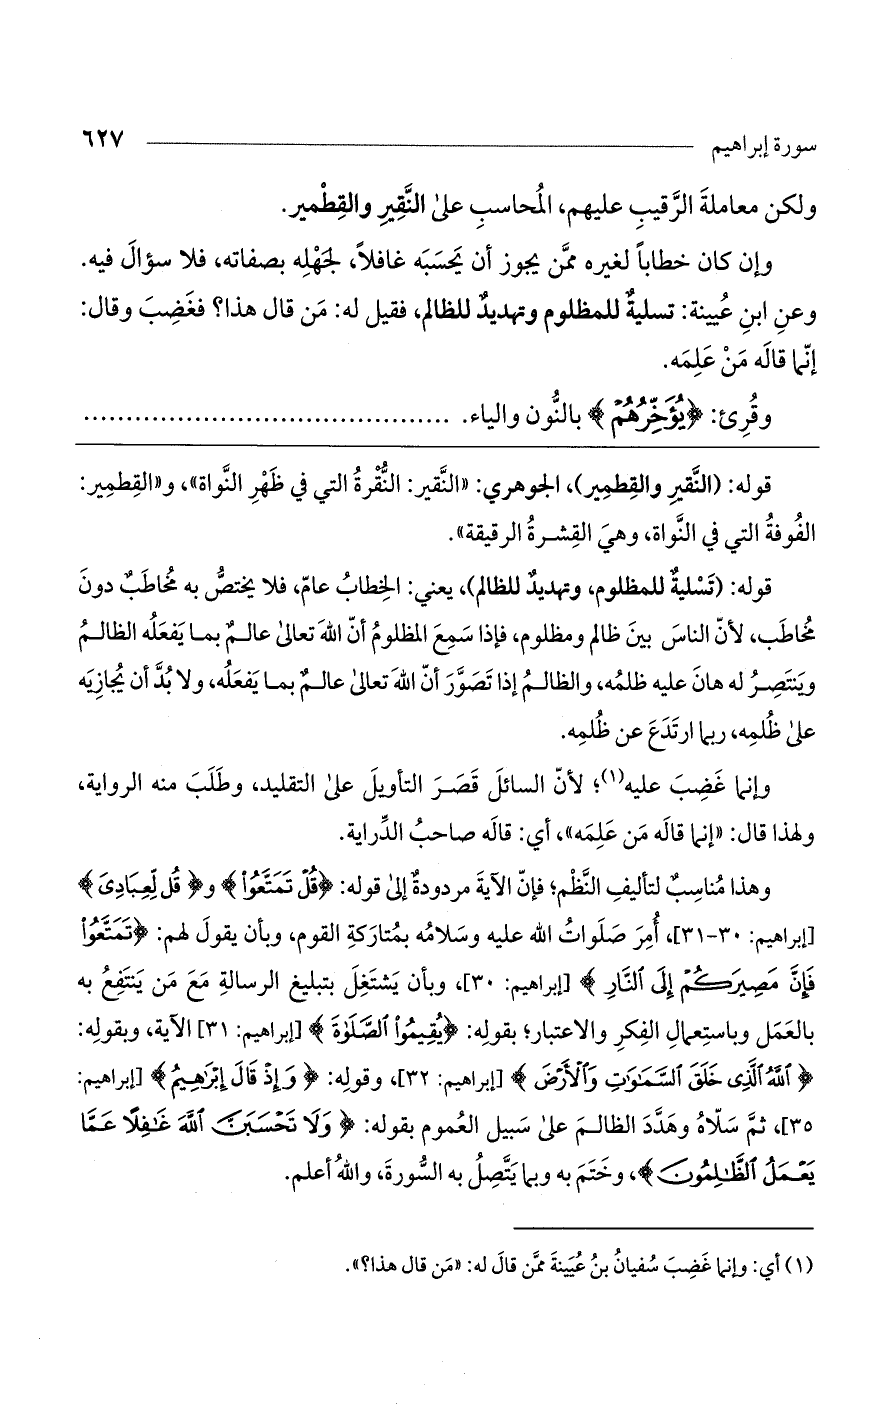 سورة إبراهيم ٦٢٧
ولكن معاملةَ الرَّقيبِ عليهم، المُحاسبِ علىٰ النَّقِيرِ والقِطْمير.
وإن كان خطاباً لغيره ممَّن يجوز أن يَحسَبَه غافلاً، لجَهْلِه بصفاته، فلا سؤالَ فيه.
وعنِ ابنِ عُيينة: تسليةٌ للمظلوم وتهديدٌ للظالم، فقيل له: مَن قال هذا؟ فغَضِبَ وقال:
إنّما قالَه مَنْ عَلِمَه.
وقُرِئ: ﴿يُؤَخِّرُهُمْ﴾ بالنُّون والياء. ..........................................
قوله: (النَّقيرِ والقِطمِير)، الجوهري: «النَّقير: النُّقْرةُ التي في ظَهْرِ النَّواة»، و«القِطمِير:
الفُوفةُ التي في النَّواة، وهيَ القِشرةُ الرقيقة».
قوله: (تَسْليةٌ للمظلوم، وتهديدٌ للظالم)، يعني: الخِطابُ عامّ، فلا يختصُّ به مُخاطَبٌ دونَ
مُخاطَب، لأنّ الناسَ بينَ ظالم ومظلوم، فإذا سَمِعَ المظلومُ أنّ اللهَ تعالىٰ عالمٌ بما يَفعَلُه الظالمُ
ويَنتَصِرُ له هانَ عليه ظلمُه، والظالمُ إذا تَصَوَّرَ أنّ اللهَ تعالىٰ عالمٌ بما يَفعَلُه، ولا بُدَّ أن يُجازِيَه
علىٰ ظُلمِه، ربما ارتَدَعَ عن ظُلمِه.
وإنما غَضِبَ عليه(١)؛ لأنّ السائلَ قَصَرَ التأويلَ علىٰ التقليد، وطَلَبَ منه الرواية،
ولهذا قال: «إنما قالَه مَن عَلِمَه»، أي: قالَه صاحبُ الدِّراية.
وهذا مُناسِبٌ لتأليفِ النَّظْم؛ فإنّ الآيةَ مردودةٌ إلىٰ قوله: ﴿قُلْ تَمَتَّعُوا۟﴾ و﴿قُل لِّعِبَادِىَ﴾
[إبراهيم: ٣٠-٣١]، أُمِرَ صَلَواتُ الله عليه وسَلامُه بمُتارَكةِ القوم، وبأن يقولَ لهم: ﴿تَمَتَّعُوا۟
فَإِنَّ مَصِيرَكُمْ إِلَى ٱلنَّارِ﴾ [إبراهيم: ٣٠]، وبأن يَشتَغِلَ بتبليغِ الرسالةِ مَعَ مَن يَنتَفِعُ به
بالعَمَل وباستِعمالِ الفِكرِ والاعتبار؛ بقولِه: ﴿يُقِيمُوا۟ ٱلصَّلَوٰةَ﴾ [إبراهيم: ٣١] الآية، وبقولِه:
﴿ٱللَّهُ ٱلَّذِى خَلَقَ ٱلسَّمَـٰوَٰتِ وَٱلْأَرْضَ﴾ [إبراهيم: ٣٢]، وقولِه: ﴿وَإِذْ قَالَ إِبْرَٰهِيمُ﴾ [إبراهيم:
٣٥]، ثمَّ سَلّاهُ وهَدَّدَ الظالمَ علىٰ سَبيل العُموم بقوله: ﴿وَلَا تَحْسَبَنَّ ٱللَّهَ غَـٰفِلًا عَمَّا
يَعْمَلُ ٱلظَّـٰلِمُونَ﴾، وخَتَمَ به وبما يَتَّصِلُ به السُّورةَ، واللهُ أعلم.
(١) أي: وإنما غَضِبَ سُفيانُ بنُ عُيَينةَ ممَّن قالَ له: «مَن قال هذا؟».